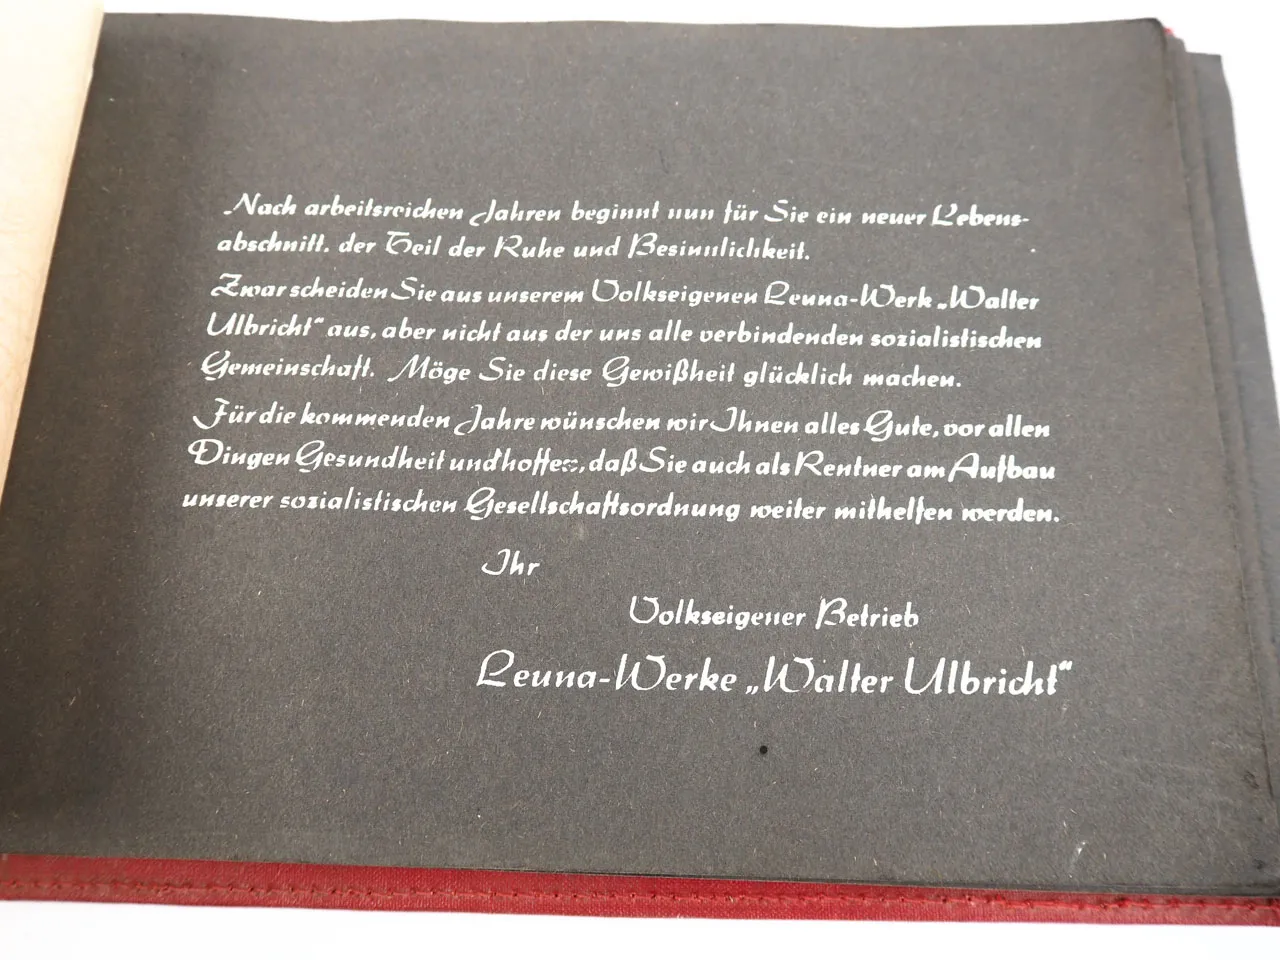 Nach arbeitsreichen Jahren beginnt nun für Sie ein neuer Lebens-
abschnitt. der Teil der Ruhe und Besinnlichkeit.
Zwar scheiden Sie aus unserem Volkseigenen Leuna-Werk „Walter
Ulbricht“ aus, aber nicht aus der uns alle verbindenden sozialistischen
Gemeinschaft. Möge Sie diese Gewißheit glücklich machen.
Für die kommenden Jahre wünschen wir Ihnen alles Gute, vor allen
Dingen Gesundheit und hoffen, daß Sie auch als Rentner am Aufbau
unserer sozialistischen Gesellschaftsordnung weiter mithelfen werden.
Ihr
Volkseigener Betrieb
Leuna-Werke „Walter Ulbricht“